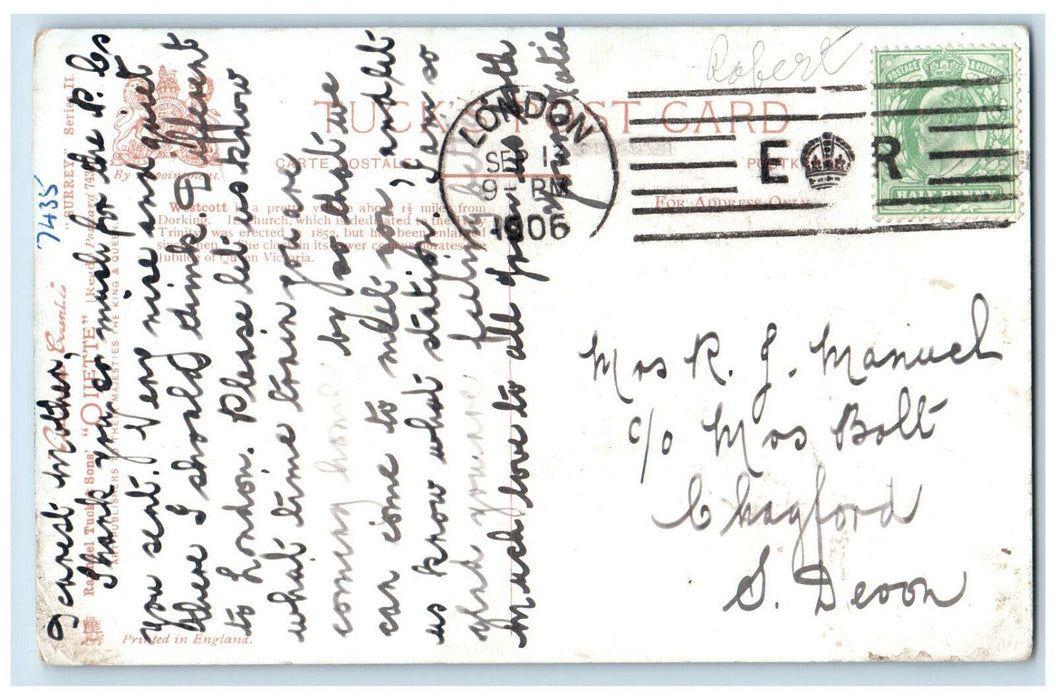 TUCK'S POST CARD
CARTE POSTALE
POSTKARTE
FOR ADDRESS ONLY
By Appointment.
"SURREY" Series III
Westcott is a pretty village about 1½ miles from
Dorking. Its church, which is dedicated to the Holy
Trinity was erected in 1852, but has been enlarged
since then. The clock in its tower commemorates the
Jubilee of Queen Victoria.
Raphael Tuck & Sons' "OILETTE" [Regd.] Postcard 7435
ART PUBLISHERS TO THEIR MAJESTIES THE KING & QUEEN
Printed in England.
7435
Robert
LONDON
SEP 1
9 PM
1906
E R
POSTAGE REVENUE
HALF PENNY
Dearest Mother,
Thank you so much for the P. Cs
you sent. Very nice and quiet
there I should think. Different
to London. Please let us know
what time train you are
coming home by so that we
can come to meet you, and let
us know what station. I am so
glad you are feeling better
Much love to all from us both
yours Katie
Mrs R. J. Manuel
c/o Mrs Bolt
Chagford
S. Devon